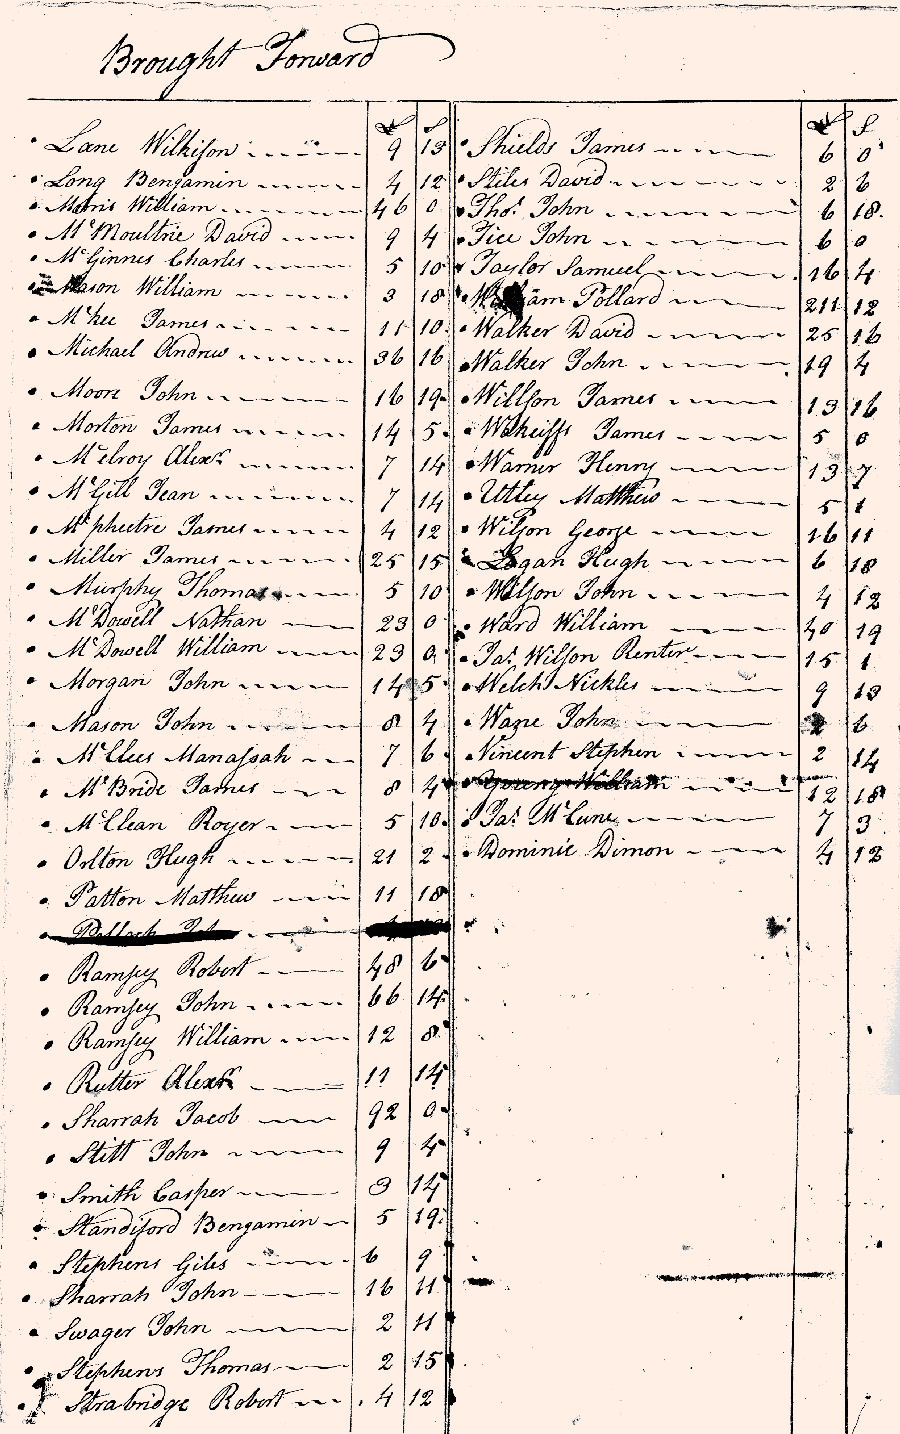 Brought Forward
£ S
Lane Wilkison 9 13
Long Bengamin 4 12
Morris William 46 0
McMoultrie David 9 4
McGinnes Charles 5 10
Mason William 3 18
Mckee James 11 10
Michael Andrew 36 16
Moore John 16 19
Morton James 14 5
Mcelroy Alexr 7 14
McGill Jean 7 14
Mcpheetre James 4 12
Miller James 25 15
Murphy Thomas 5 10
McDowell Nathan 23 0
McDowell William 23 0
Morgan John 14 5
Mason John 8 4
McClees Manassah 7 6
McBride James 8 4
McClean Royer 5 10
Orlton Hugh 21 2
Patton Matthew 11 18
Pollock John
Ramsey Robert 48 6
Ramsey John 66 14
Ramsey William 12 8
Rutter Alexr 11 14
Sharrah Jacob 92 0
Stitt John 9 4
Smith Casper 3 14
Standiford Bengamin 5 19
Stephens Giles 6 9
Sharrah John 16 11
Swager John 2 11
Stephens Thomas 2 15
Strabridge Robert 4 12
£ S
Shields James 6 0
Stiles David 2 6
Thos. John 6 18
Tice John 6 0
Taylor Samuel 16 4
William Pollard 211 12
Walker David 25 16
Walker John 19 4
Willson James 13 16
James 5 0
Warner Henry 13 7
Utley Matthew 5 1
Wilson George 16 11
Logan Hugh 6 18
Wilson John 4 12
Ward William 40 19
Jas. Wilson Renter 15 1
Welch Nickles 9 13
Wane John 2 6
Vincent Stephen 2 14
Young William 12 18
Jas. McCune 7 3
Dominic Dimon 4 12